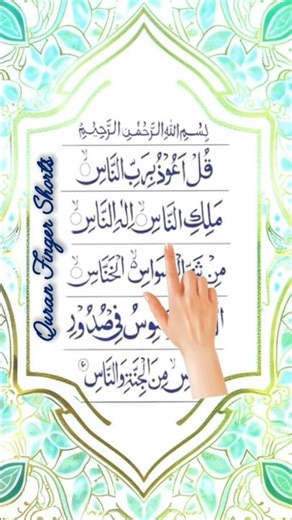 بِسْمِ اللهِ الرَّحْمٰنِ الرَّحِيْمِ
قُلْ اَعُوْذُ بِرَبِّ النَّاسِ ۙ
مَلِكِ النَّاسِ ۙ اِلٰهِ النَّاسِ ۙ
مِنْ الْخَنَّاسِ ۙ
فِيْ صُدُوْرِ
مِنَ الْجِنَّةِ وَالنَّاسِ
Quran Finger Shorts